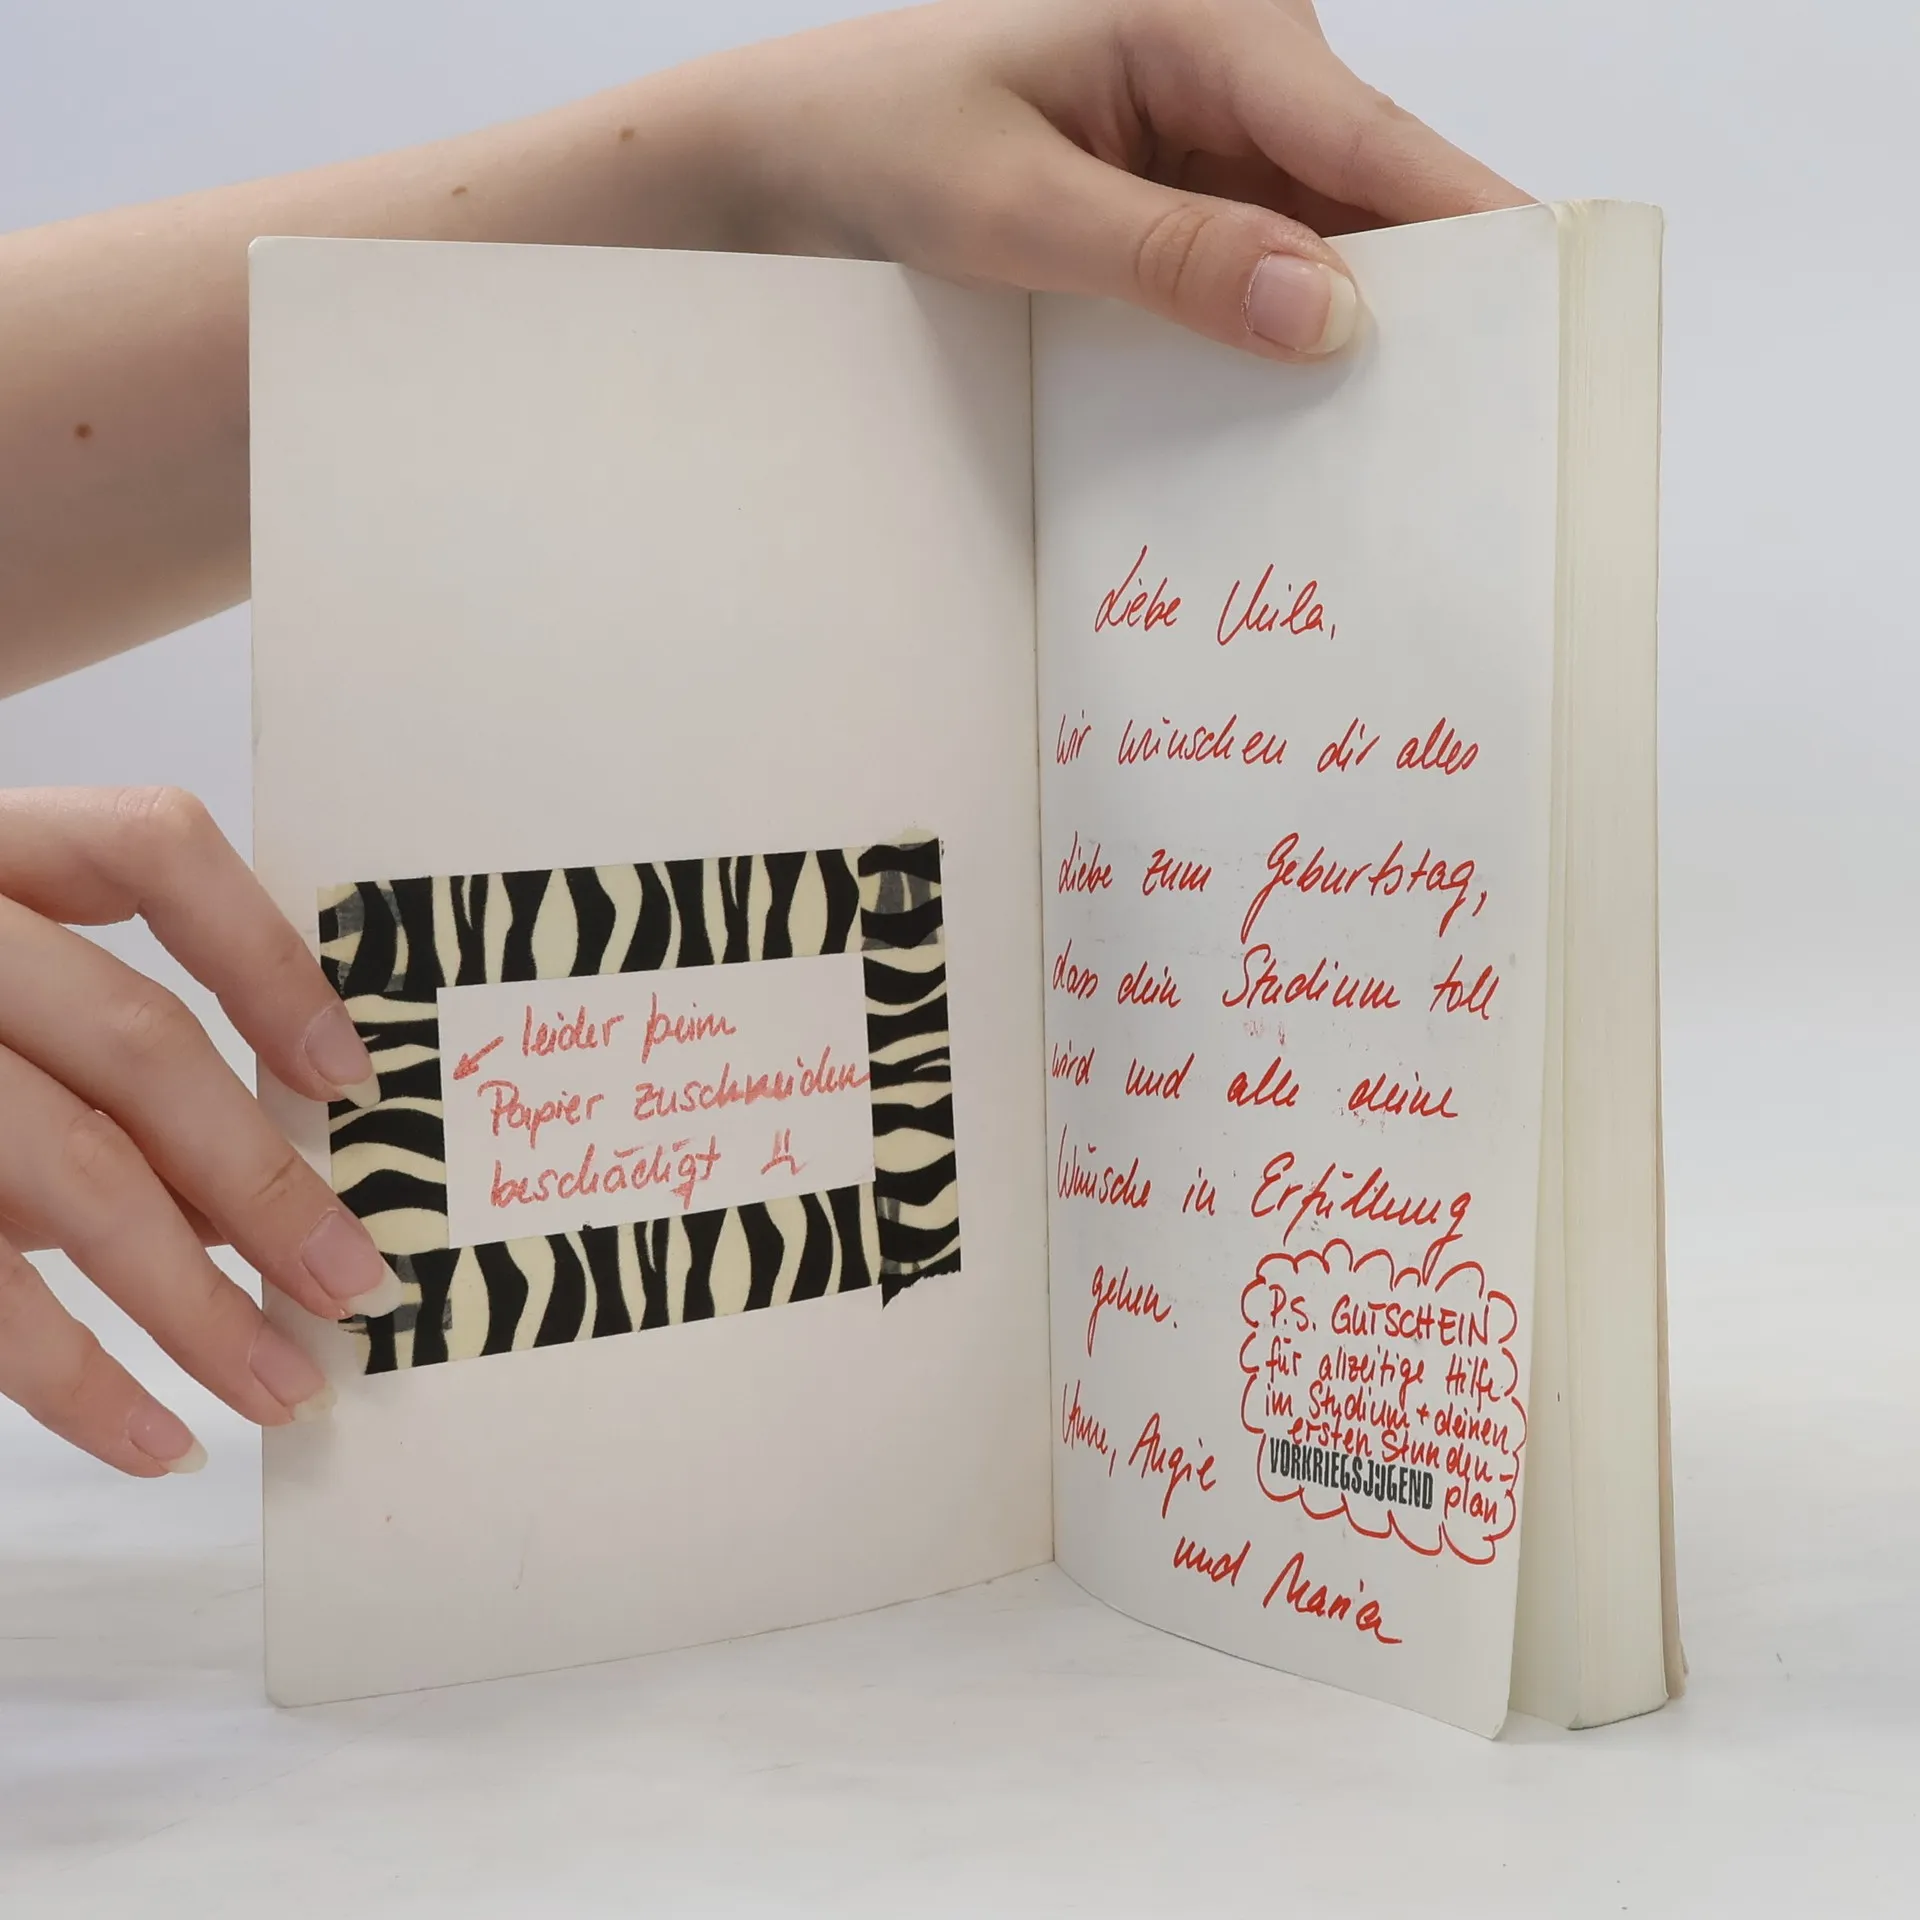 leider beim
Papier zuschneiden
beschädigt
Liebe Mila,
wir wünschen dir alles
Liebe zum Geburtstag,
dass dein Studium toll
wird und alle deine
Wünsche in Erfüllung
gehen.
P.S. GUTSCHEIN
für allzeitige Hilfe
im Studium + deinen
ersten Stunden-
VORKRIEGSJUGEND plan
Angie
und Maria